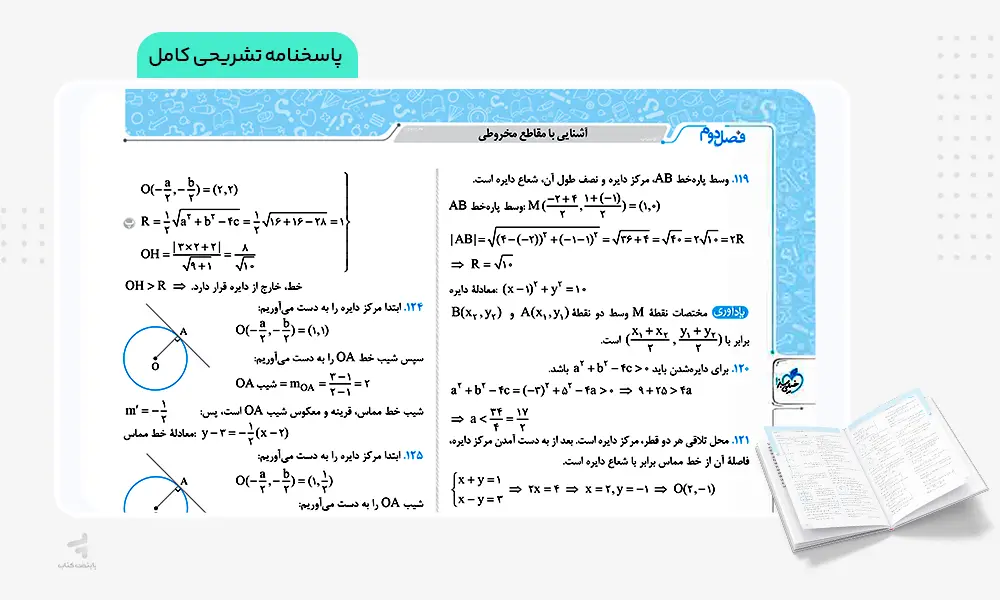 پاسخنامه تشریحی کامل
فصل دوم
آشنایی با مقاطع مخروطی
۱۱۹. وسط پاره‌خط AB، مرکز دایره و نصف طول آن، شعاع دایره است.
وسط پاره‌خط AB: M(\frac{-۲+۴}{۲}, \frac{۱+(-۱)}{۲}) = (۱,۰)
|AB| = \sqrt{(۴-(-۲))^۲ + (-۱-۱)^۲} = \sqrt{۳۶+۴} = \sqrt{۴۰} = ۲\sqrt{۱۰} = ۲R
⇒ R = \sqrt{۱۰}
معادلهٔ دایره: (x-۱)^۲ + y^۲ = ۱۰
یادآوری مختصات نقطهٔ M وسط دو نقطهٔ A(x_۱,y_۱) و B(x_۲,y_۲)
برابر با (\frac{x_۱+x_۲}{۲}, \frac{y_۱+y_۲}{۲}) است.
۱۲۰. برای دایره‌شدن باید a^۲+b^۲-۴c>۰ باشد.
a^۲+b^۲-۴c = (-۳)^۲+۵^۲-۴a>۰ ⇒ ۹+۲۵>۴a
⇒ a < \frac{۳۴}{۴} = \frac{۱۷}{۲}
۱۲۱. محل تلاقی هر دو قطر، مرکز دایره است. بعد از به دست آمدن مرکز دایره،
فاصلهٔ آن از خط مماس برابر با شعاع دایره است.
{x+y=۱
{x-y=۳ ⇒ ۲x=۴ ⇒ x=۲, y=-۱ ⇒ O(۲,-۱)
O(-\frac{a}{۲}, -\frac{b}{۲}) = (۲,۲)
R = \frac{۱}{۲}\sqrt{a^۲+b^۲-۴c} = \frac{۱}{۲}\sqrt{۱۶+۱۶-۲۸} = ۱
OH = \frac{|۳×۲+۲|}{\sqrt{۹+۱}} = \frac{۸}{\sqrt{۱۰}}
OH > R ⇒ خط، خارج از دایره قرار دارد.
۱۲۴. ابتدا مرکز دایره را به دست می‌آوریم:
O(-\frac{a}{۲}, -\frac{b}{۲}) = (۱,۱)
سپس شیب خط OA را به دست می‌آوریم:
شیب OA = m_{OA} = \frac{۳-۱}{۲-۱} = ۲
A
O
شیب خط مماس، قرینه و معکوس شیب OA است، پس: m' = -\frac{۱}{۲}
معادلهٔ خط مماس: y-۳ = -\frac{۱}{۲}(x-۲)
۱۲۵. ابتدا مرکز دایره را به دست می‌آوریم:
O(-\frac{a}{۲}, -\frac{b}{۲}) = (۱, \frac{۱}{۲})
شیب OA را به دست می‌آوریم:
A
پایتخت کتاب